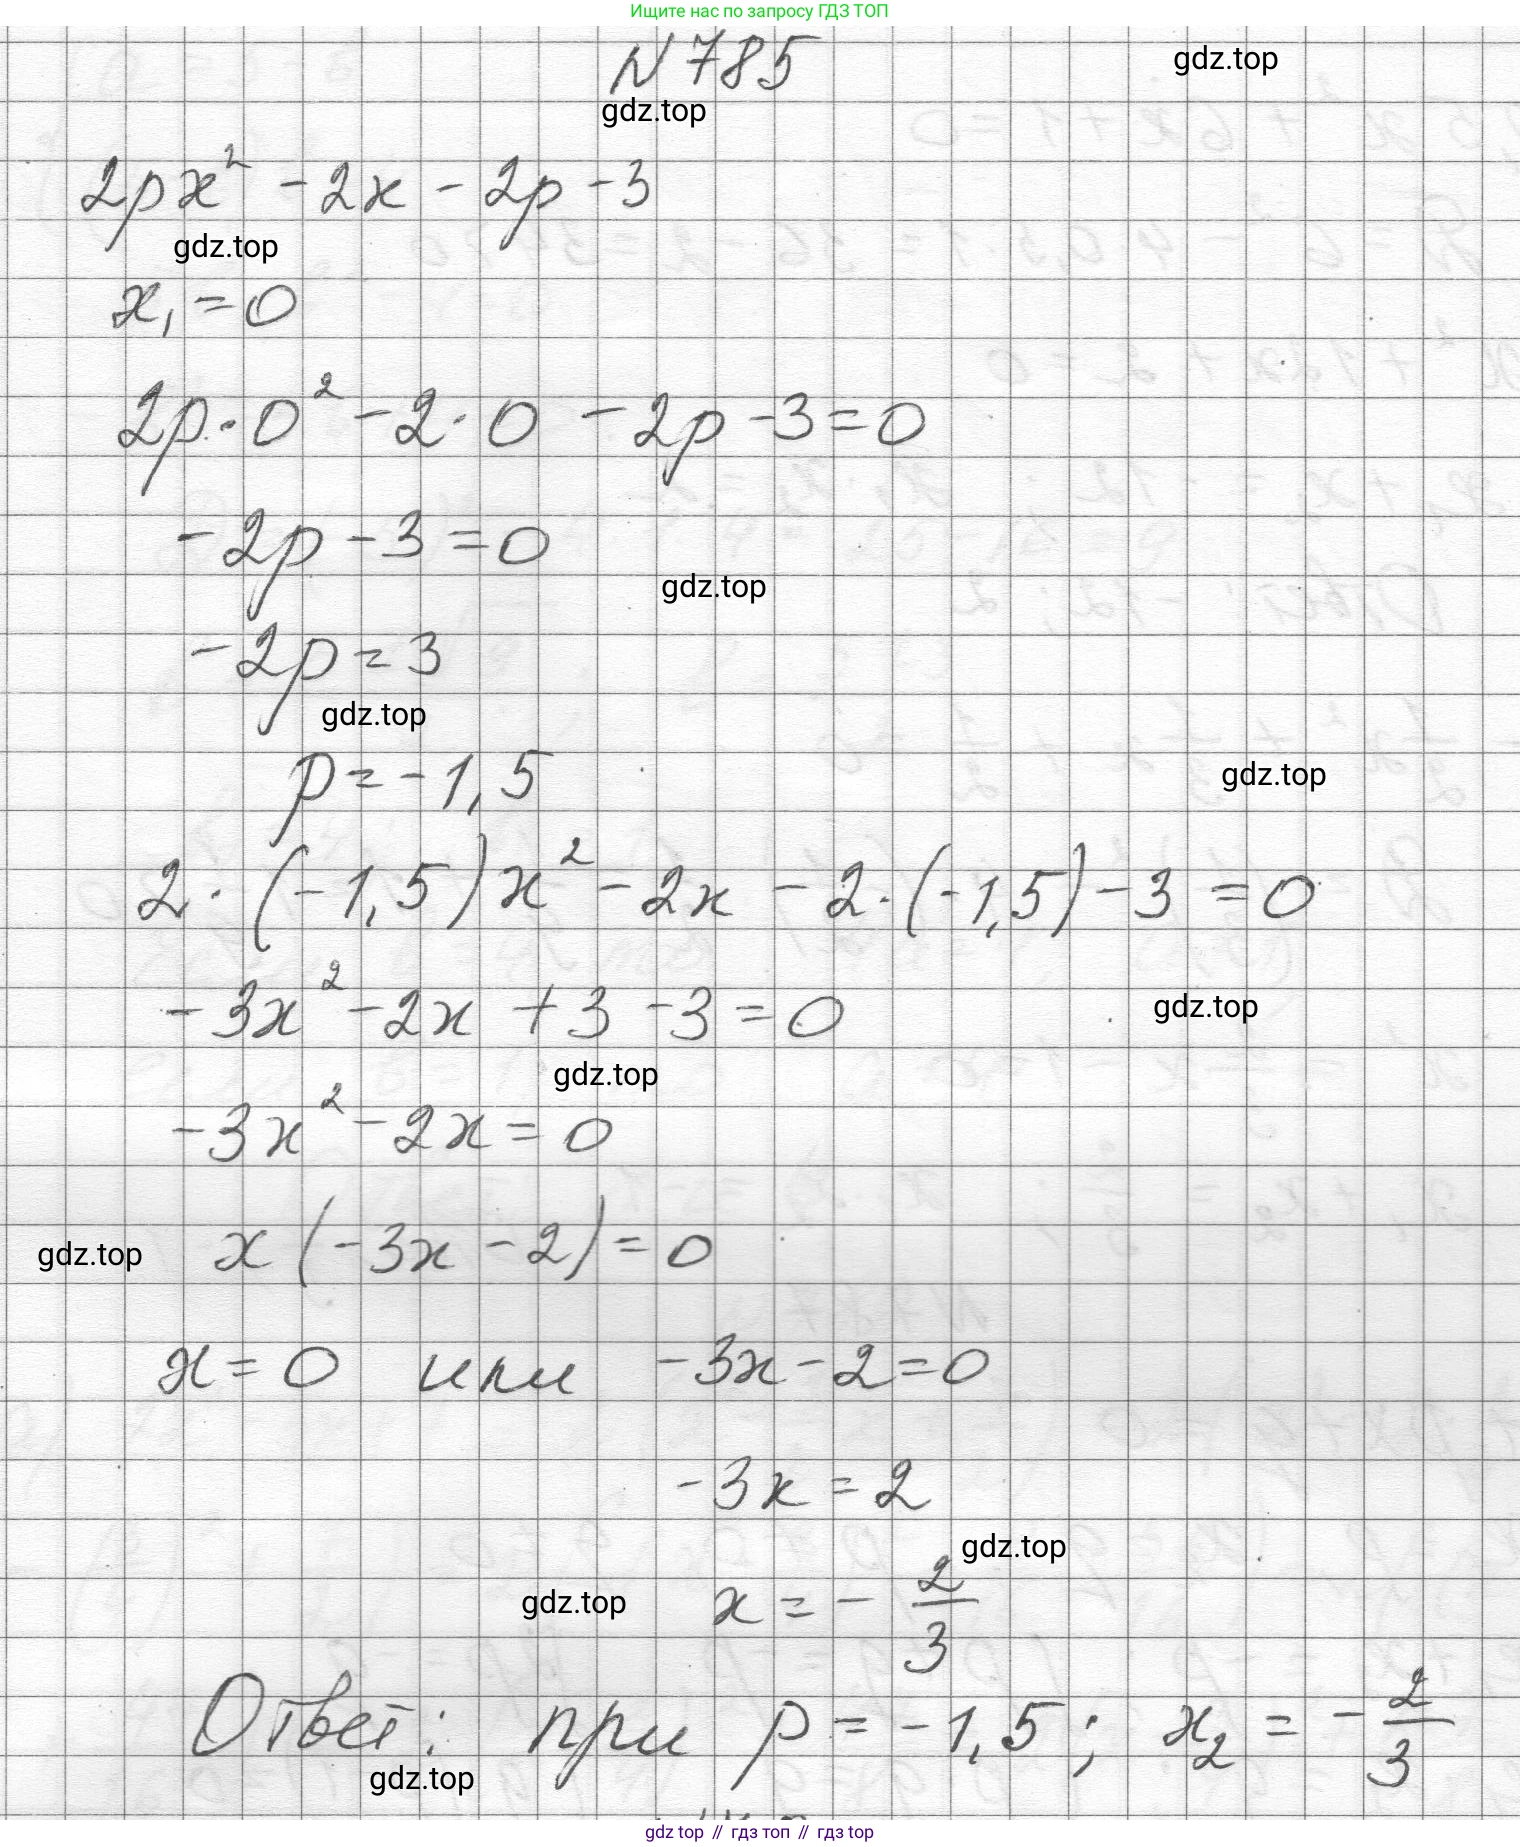 Ищите нас по запросу ГДЗ ТОП
N 785
gdz.top
gdz.top
2px² - 2x - 2p - 3
gdz.top
x₁ = 0
2p · 0² - 2 · 0 - 2p - 3 = 0
-2p - 3 = 0
gdz.top
-2p = 3
gdz.top
p = -1,5
gdz.top
2 · (-1,5)x² - 2x - 2 · (-1,5) - 3 = 0
-3x² - 2x + 3 - 3 = 0
gdz.top
gdz.top
-3x² - 2x = 0
gdz.top
x(-3x - 2) = 0
x = 0 или -3x - 2 = 0
-3x = 2
gdz.top
gdz.top
x = -2/3
Ответ: при p = -1,5; x₂ = -2/3
gdz.top
gdz top // гдз топ // гдз top